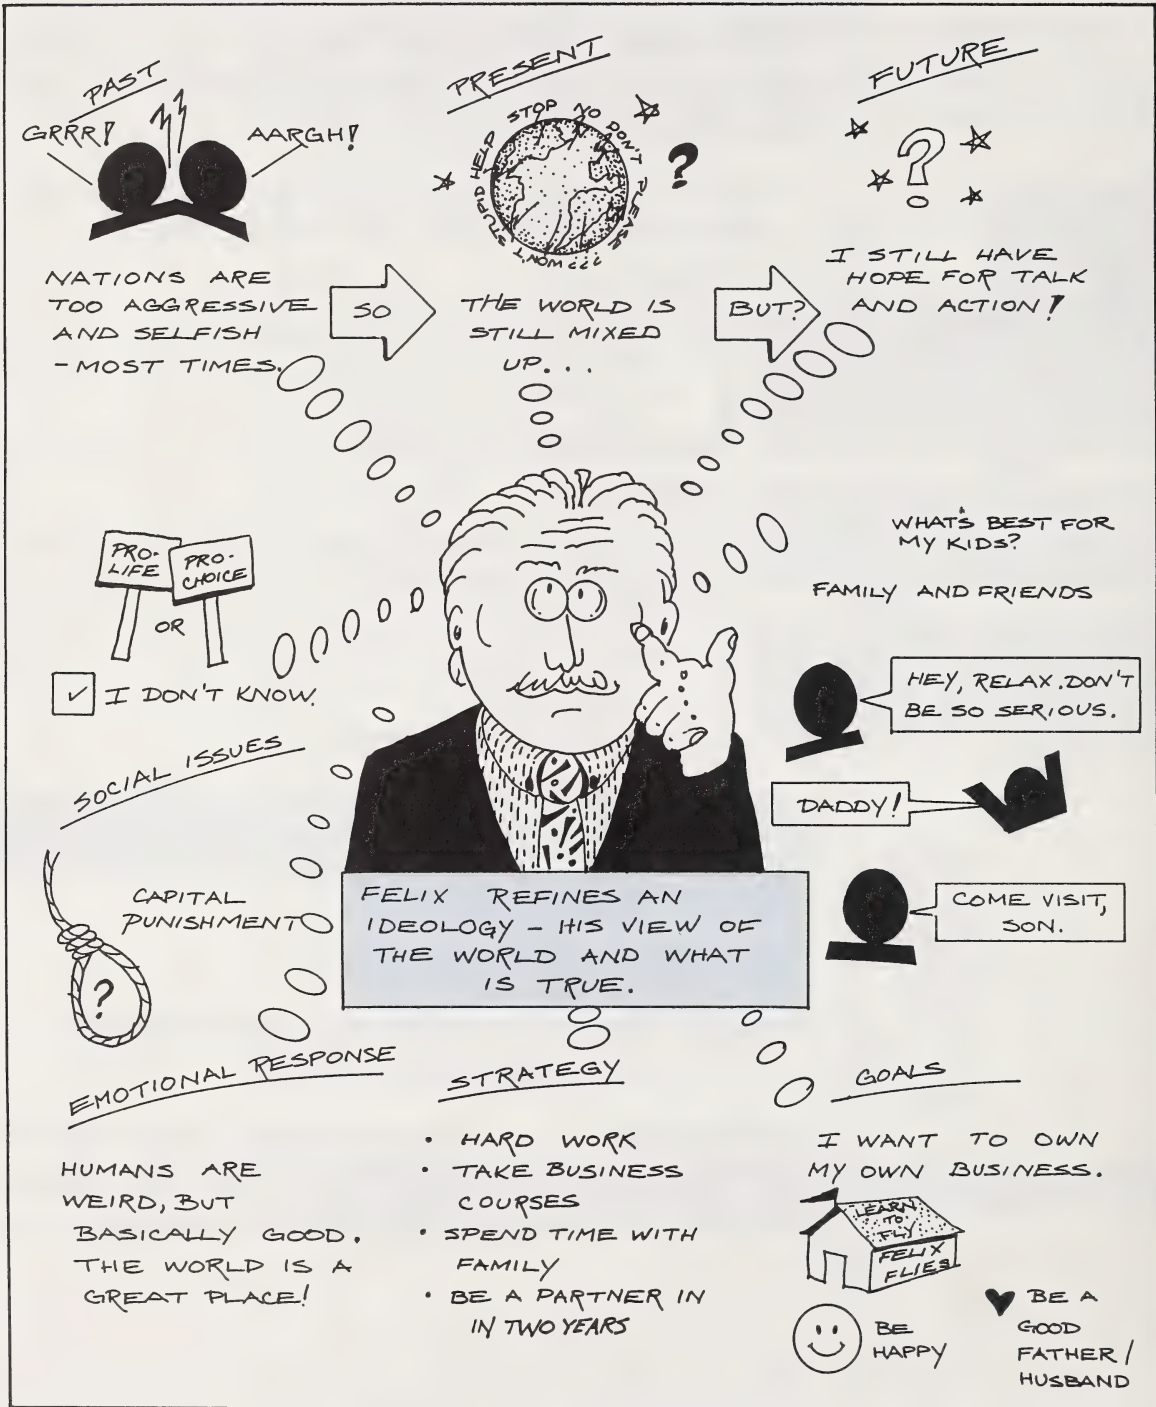 PAST
GRRR!
AARGH!
NATIONS ARE
TOO AGGRESSIVE
AND SELFISH
- MOST TIMES.
SO
PRESENT
STUPID HELP STOP NO DON'T PLEASE ??? WON'T
?
THE WORLD IS
STILL MIXED
UP...
BUT?
FUTURE
?
I STILL HAVE
HOPE FOR TALK
AND ACTION!
PRO-
LIFE
PRO-
CHOICE
OR
✓ I DON'T KNOW.
SOCIAL ISSUES
CAPITAL
PUNISHMENT
?
WHAT'S BEST FOR
MY KIDS?
FAMILY AND FRIENDS
HEY, RELAX. DON'T
BE SO SERIOUS.
DADDY!
COME VISIT,
SON.
FELIX REFINES AN
IDEOLOGY - HIS VIEW OF
THE WORLD AND WHAT
IS TRUE.
EMOTIONAL RESPONSE
HUMANS ARE
WEIRD, BUT
BASICALLY GOOD.
THE WORLD IS A
GREAT PLACE!
STRATEGY
• HARD WORK
• TAKE BUSINESS
COURSES
• SPEND TIME WITH
FAMILY
• BE A PARTNER IN
IN TWO YEARS
GOALS
I WANT TO OWN
MY OWN BUSINESS.
LEARN
TO
FLY
FELIX
FLIES
BE
HAPPY
BE A
GOOD
FATHER/
HUSBAND